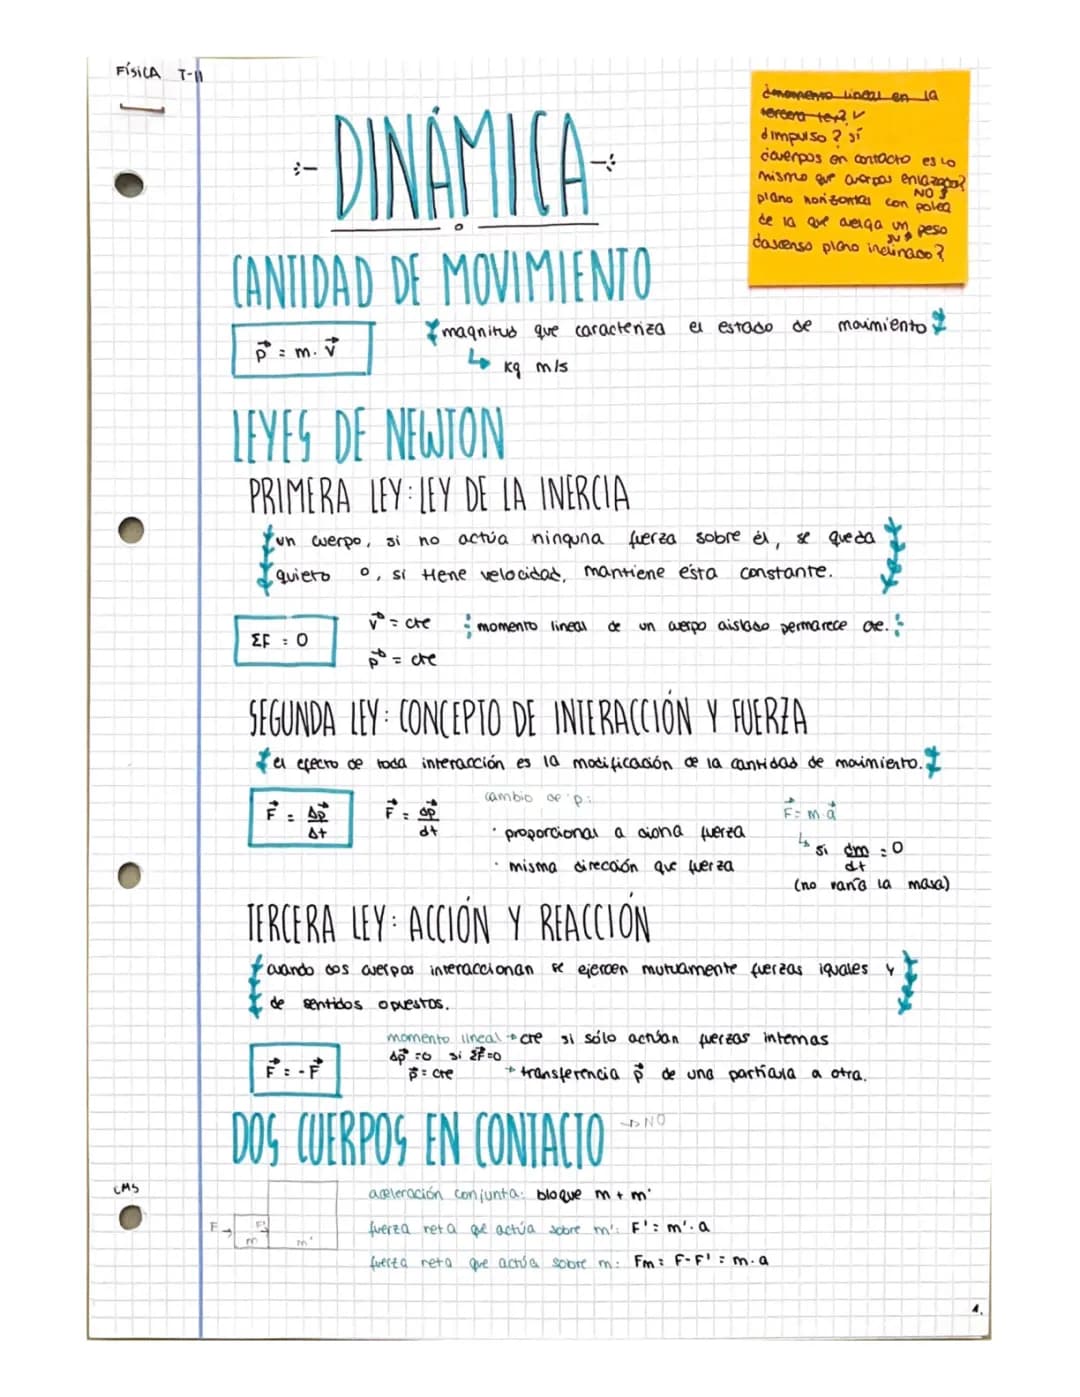 FÍSICA T-11
¿momento lineal en la
tercera ley? ✓
¿impulso? sí
¿cuerpos en contacto es lo
mismo que cuerpos enlazados?
NO
plano horizontal con polea
de la que cuelga un peso
¿ascenso plano inclinado?
DINÁMICA
CANTIDAD DE MOVIMIENTO
p⃗ = m · v⃗
magnitud que caracteriza el estado de movimiento
↳ kg m/s
LEYES DE NEWTON
PRIMERA LEY: LEY DE LA INERCIA
un cuerpo, si no actúa ninguna fuerza sobre él, se queda
quieto o, si tiene velocidad, mantiene ésta constante.
ΣF = 0
v⃗ = cte
momento lineal de un cuerpo aislado permanece cte.
p⃗ = cte
SEGUNDA LEY: CONCEPTO DE INTERACCIÓN Y FUERZA
el efecto de toda interacción es la modificación de la cantidad de movimiento.
F⃗ = Δp⃗/Δt
F⃗ = dp⃗/dt
cambio de p:
· proporcional a dicha fuerza
· misma dirección que fuerza
F⃗ = m a⃗
↳ si dm/dt = 0
(no varía la masa)
TERCERA LEY: ACCIÓN Y REACCIÓN
cuando dos cuerpos interaccionan se ejercen mutuamente fuerzas iguales y
de sentidos opuestos.
F⃗ = -F⃗
momento lineal → cte si sólo actúan fuerzas internas
Δp⃗ = 0 si ΣF⃗ = 0
p⃗ = cte → transferencia p⃗ de una partícula a otra.
DOS CUERPOS EN CONTACTO → NO
CMS
F → F' m m'
aceleración conjunta: bloque m + m'
fuerza neta que actúa sobre m': F' = m' · a
fuerza neta que actúa sobre m: Fm = F - F' = m · a
1.